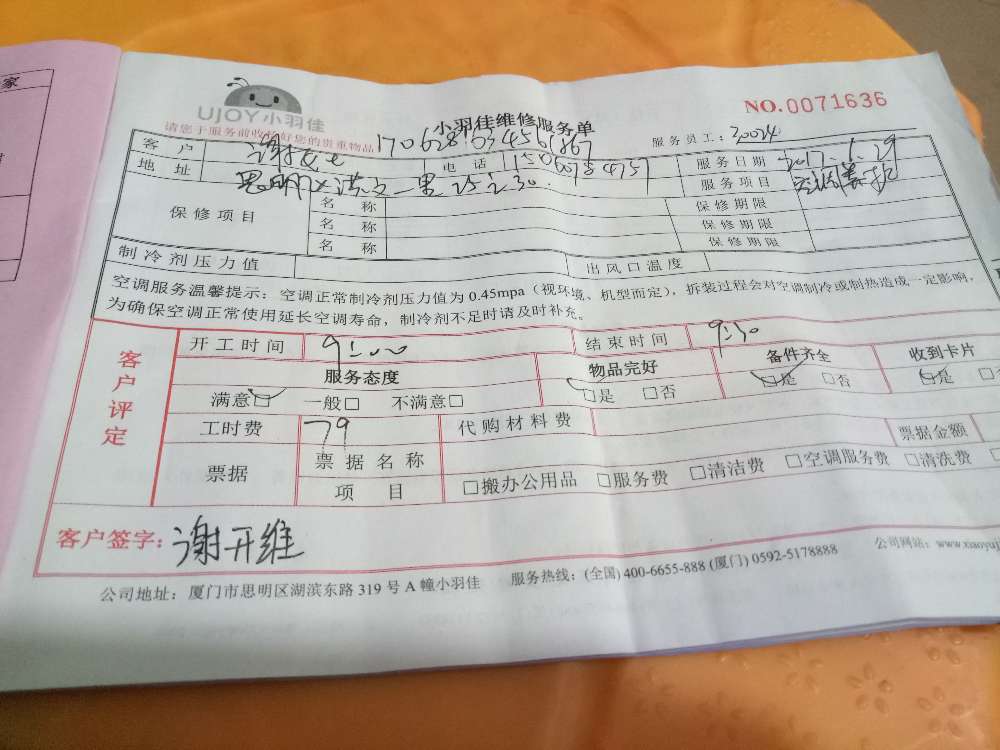 家
UJOY小羽佳
NO.0071636
小羽佳维修服务单
请您于服务前收好您的贵重物品
170628
服务员工:
客户 谢女士 电话 服务日期 2017.6.29
地址 服务项目 空调
保修项目 名称 保修期限
名称 保修期限
名称 保修期限
制冷剂压力值 出风口温度
空调服务温馨提示：空调正常制冷剂压力值为0.45mpa（视环境、机型而定），拆装过程会对空调制冷或制热造成一定影响，
为确保空调正常使用延长空调寿命，制冷剂不足时请及时补充。
客户评定
开工时间 9:00 结束时间 9:30
服务态度 物品完好 备件齐全 收到卡片
满意☑ 一般□ 不满意□ ☑是 □否 ☑是 □否 ☑是 □
工时费 79 代购材料费
票据 票据名称 票据金额
项目 □搬办公用品 □服务费 □清洁费 □空调服务费 □清洗费
客户签字: 谢开维
公司地址：厦门市思明区湖滨东路 319 号 A 幢小羽佳 服务热线：(全国) 400-6655-888 (厦门) 0592-5178888 公司网站：www.xiaoyuj